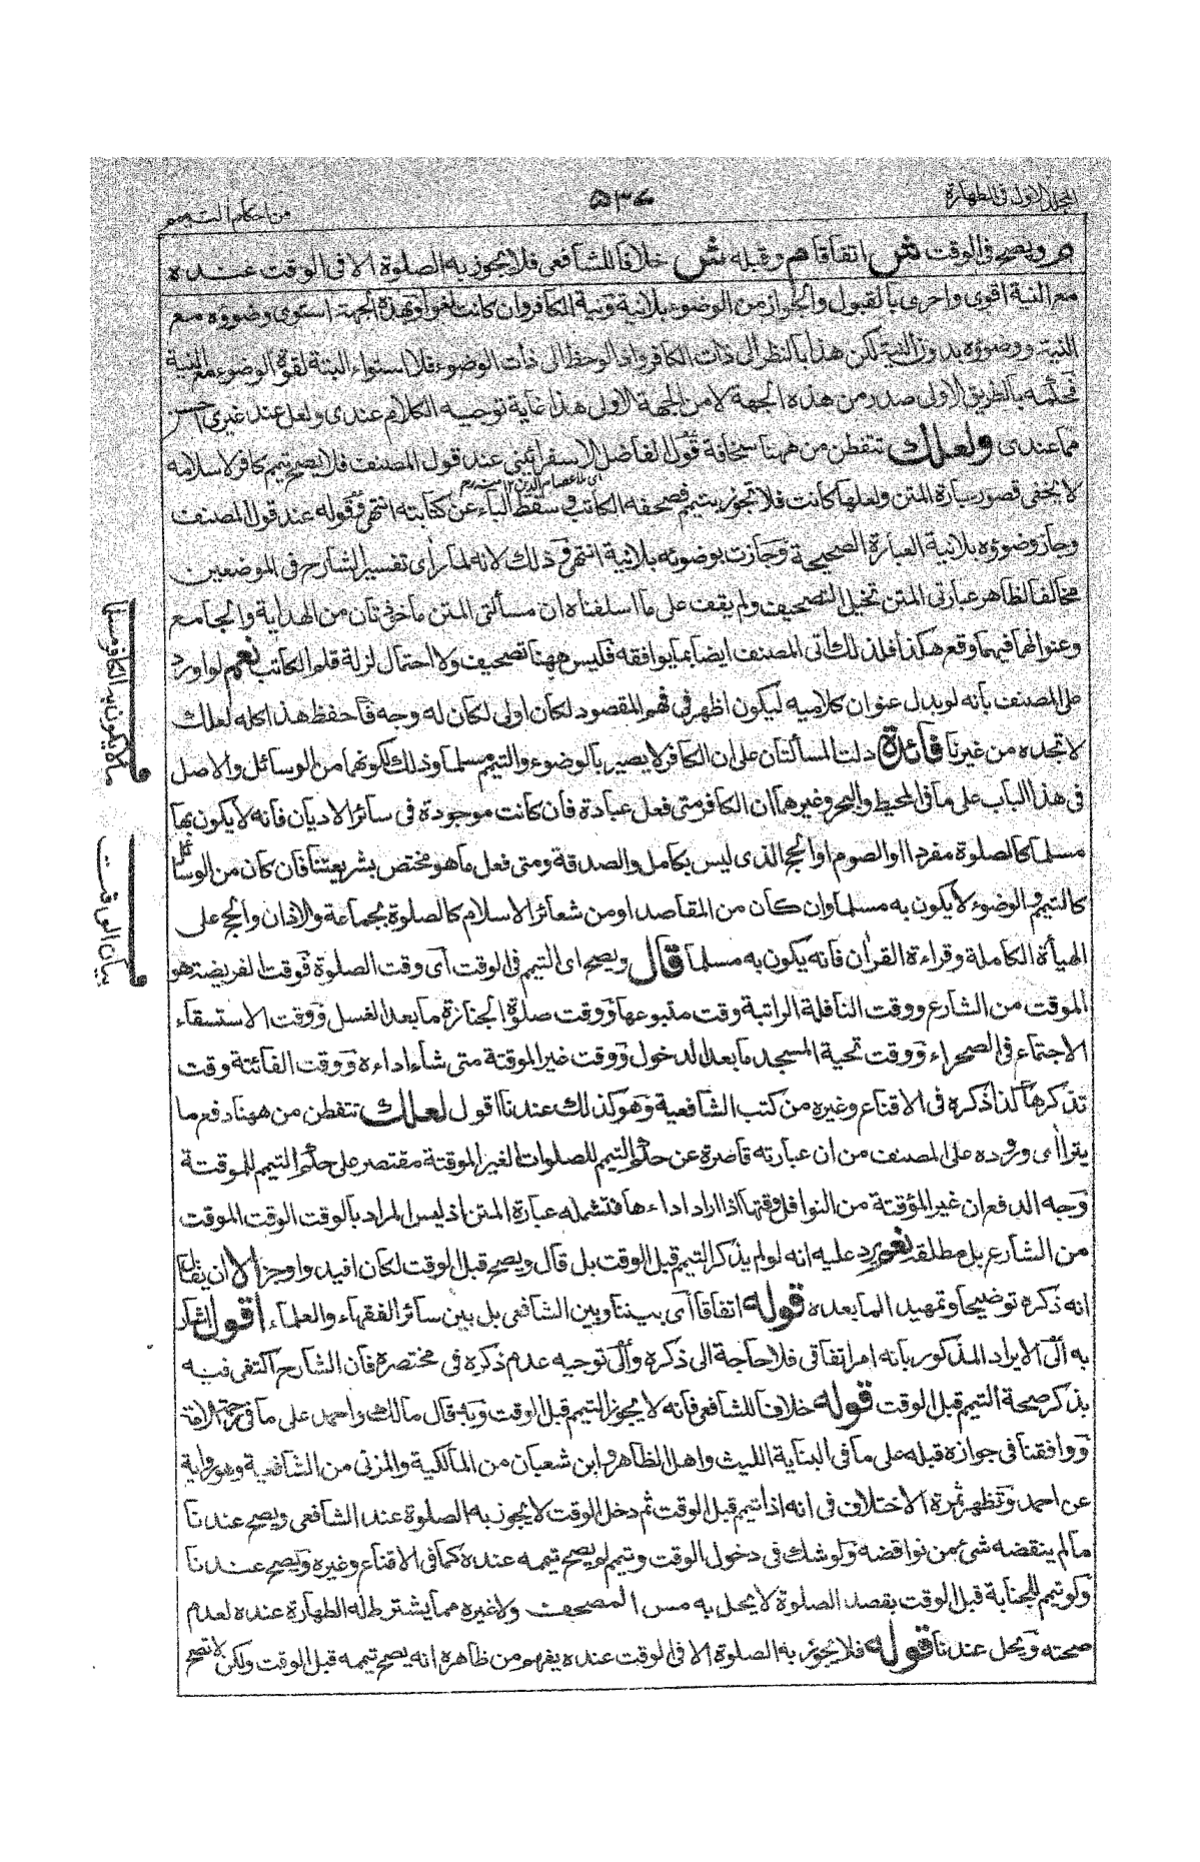 المجلد الاول فى الطهارة
۵۳۷
من احكام التيمم
م ويصح فى الوقت ش اتفاقا م وقبله ش خلافا للشافعى فلا يجوز به الصلوة الا فى الوقت عنده
مع النية اقوى واحرى بالقبول والجواز من الوضوء بلانية ونية الكافر وان كانت لغوا وبهذه الجهة استوى وضوؤه مع
النية ووضوؤه بدون النية لكن هذا بالنظر الى ذات الكافر واذا لوحظ الى ذات الوضوء فلا استواء البتة لقوة الوضوء مع النية
فحكمه بالطريق الاولى صدر من هذه الجهة لا من الجهة الاولى هذا غاية توجيه الكلام عندى ولعل عند غيرى احسن
مما عندى ولعلك تتفطن من ههنا سخافة قول الفاضل الاسفرائينى عند قول المصنف فلا يصح تيمم كافر لاسلامه
اى ملا عصام الدين ١٢ منه رح
لا يخفى قصور عبارة المتن ولعلها كانت فلا تجوز بتيمم فصحفه الكاتب وسقط الباء عن كتابته انتهى وقوله عند قول المصنف
وجاز وضوؤه بلانية العبارة الصحيحة وجازت بوضوئه بلانية انتهى وذلك لانه لما رأى تفسير الشارح فى الموضعين
مخالفا لظاهر عبارتى المتن تخيل التصحيف ولم يقف على ما اسلفناه ان مسألتى المتن ماخوذتان من الهداية والجامع
وعنوانهما فيهما وقع هكذا فلذلك اتى المصنف ايضا بما يوافقه فليس ههنا تصحيف ولا احتمال لزلة قلم الكاتب نعم لو اورد
على المصنف بانه لو بدل عنوان كلاميه ليكون اظهر فى فهم المقصود لكان اولى لكان له وجه فاحفظ هذا كله لعلك
لا تجده من غيرنا فائدة دلت المسألتان على ان الكافر لا يصير بالوضوء والتيمم مسلما وذلك لكونهما من الوسائل والاصل
فى هذا الباب على ما فى المحيط والبحر وغيرهما ان الكافر متى فعل عبادة فان كانت موجودة فى سائر الاديان فانه لا يكون بها
مسلما كالصلوة مفردا او الصوم او الحج الذى ليس بكامل والصدقة ومتى فعل ما هو مختص بشريعتنا فان كان من الوسائل
كالتيمم والوضوء لا يكون به مسلما وان كان من المقاصد او من شعائر الاسلام كالصلوة بجماعة والاذان والحج على
الهيأة الكاملة وقراءة القرأن فانه يكون به مسلما قال ويصح اى التيمم فى الوقت اى وقت الصلوة فوقت الفريضة هو
الموقت من الشارع ووقت النافلة الراتبة وقت متبوعها ووقت صلوة الجنازة ما بعد الغسل ووقت الاستسقاء
الاجتماع فى الصحراء ووقت تحية المسجد ما بعد الدخول ووقت غير الموقتة متى شاء اداءه ووقت الفائتة وقت
تذكرها كذا ذكره فى الاقناع وغيره من كتب الشافعية وهو كذلك عندنا اقول لعلك تتفطن من ههنا دفع ما
يتراأى وروده على المصنف من ان عبارته قاصرة عن حكم التيمم للصلوات الغير الموقتة مقتصر على حكم التيمم للموقتة
وجه الدفع ان غير المؤقتة من النوافل وقتها اذا اراد اداءها فتشمله عبارة المتن اذ ليس المراد بالوقت الوقت الموقت
من الشارع بل مطلقه نعم يرد عليه انه لو لم يذكر التيمم قبل الوقت بل قال ويصح قبل الوقت لكان افيد واوجز الا ان يقال
انه ذكره توضيحا وتمهيدا لما بعده قوله اتفاقا اى بيننا وبين الشافعى بل بين سائر الفقهاء والعلماء اقول اشار
به الى الايراد المذكور بانه امر اتفاقى فلا حاجة الى ذكره والى توجيه عدم ذكره فى مختصره فان الشارح اكتفى فيه
بذكر صحة التيمم قبل الوقت قوله خلافا للشافعى فانه لا يجوز التيمم قبل الوقت وبه قال مالك واحمد على ما فى رحمة الامة
ووافقنا فى جوازه قبله على ما فى البناية الليث واهل الظاهر وابن شعبان من المالكية والمزنى من الشافعية وهو رواية
عن احمد وتظهر ثمرة الاختلاف فى انه اذا تيمم قبل الوقت ثم دخل الوقت لا يجوز به الصلوة عند الشافعى ويصح عندنا
ما لم ينقضه شئ من نواقضه ولو شك فى دخول الوقت وتيمم لم يصح تيممه عنده كما فى الاقناع وغيره ويصح عندنا
ولو تيمم للجنابة قبل الوقت بقصد الصلوة لا يحل به مس المصحف ولا غيره مما يشترط له الطهارة عنده لعدم
صحته ويحل عندنا قوله فلا يجوز به الصلوة الا فى الوقت عنده يفهم من ظاهره انه يصح تيممه قبل الوقت ولكن لا تصح
ما لا يكون به الكافر مسلما
بيان الوقت